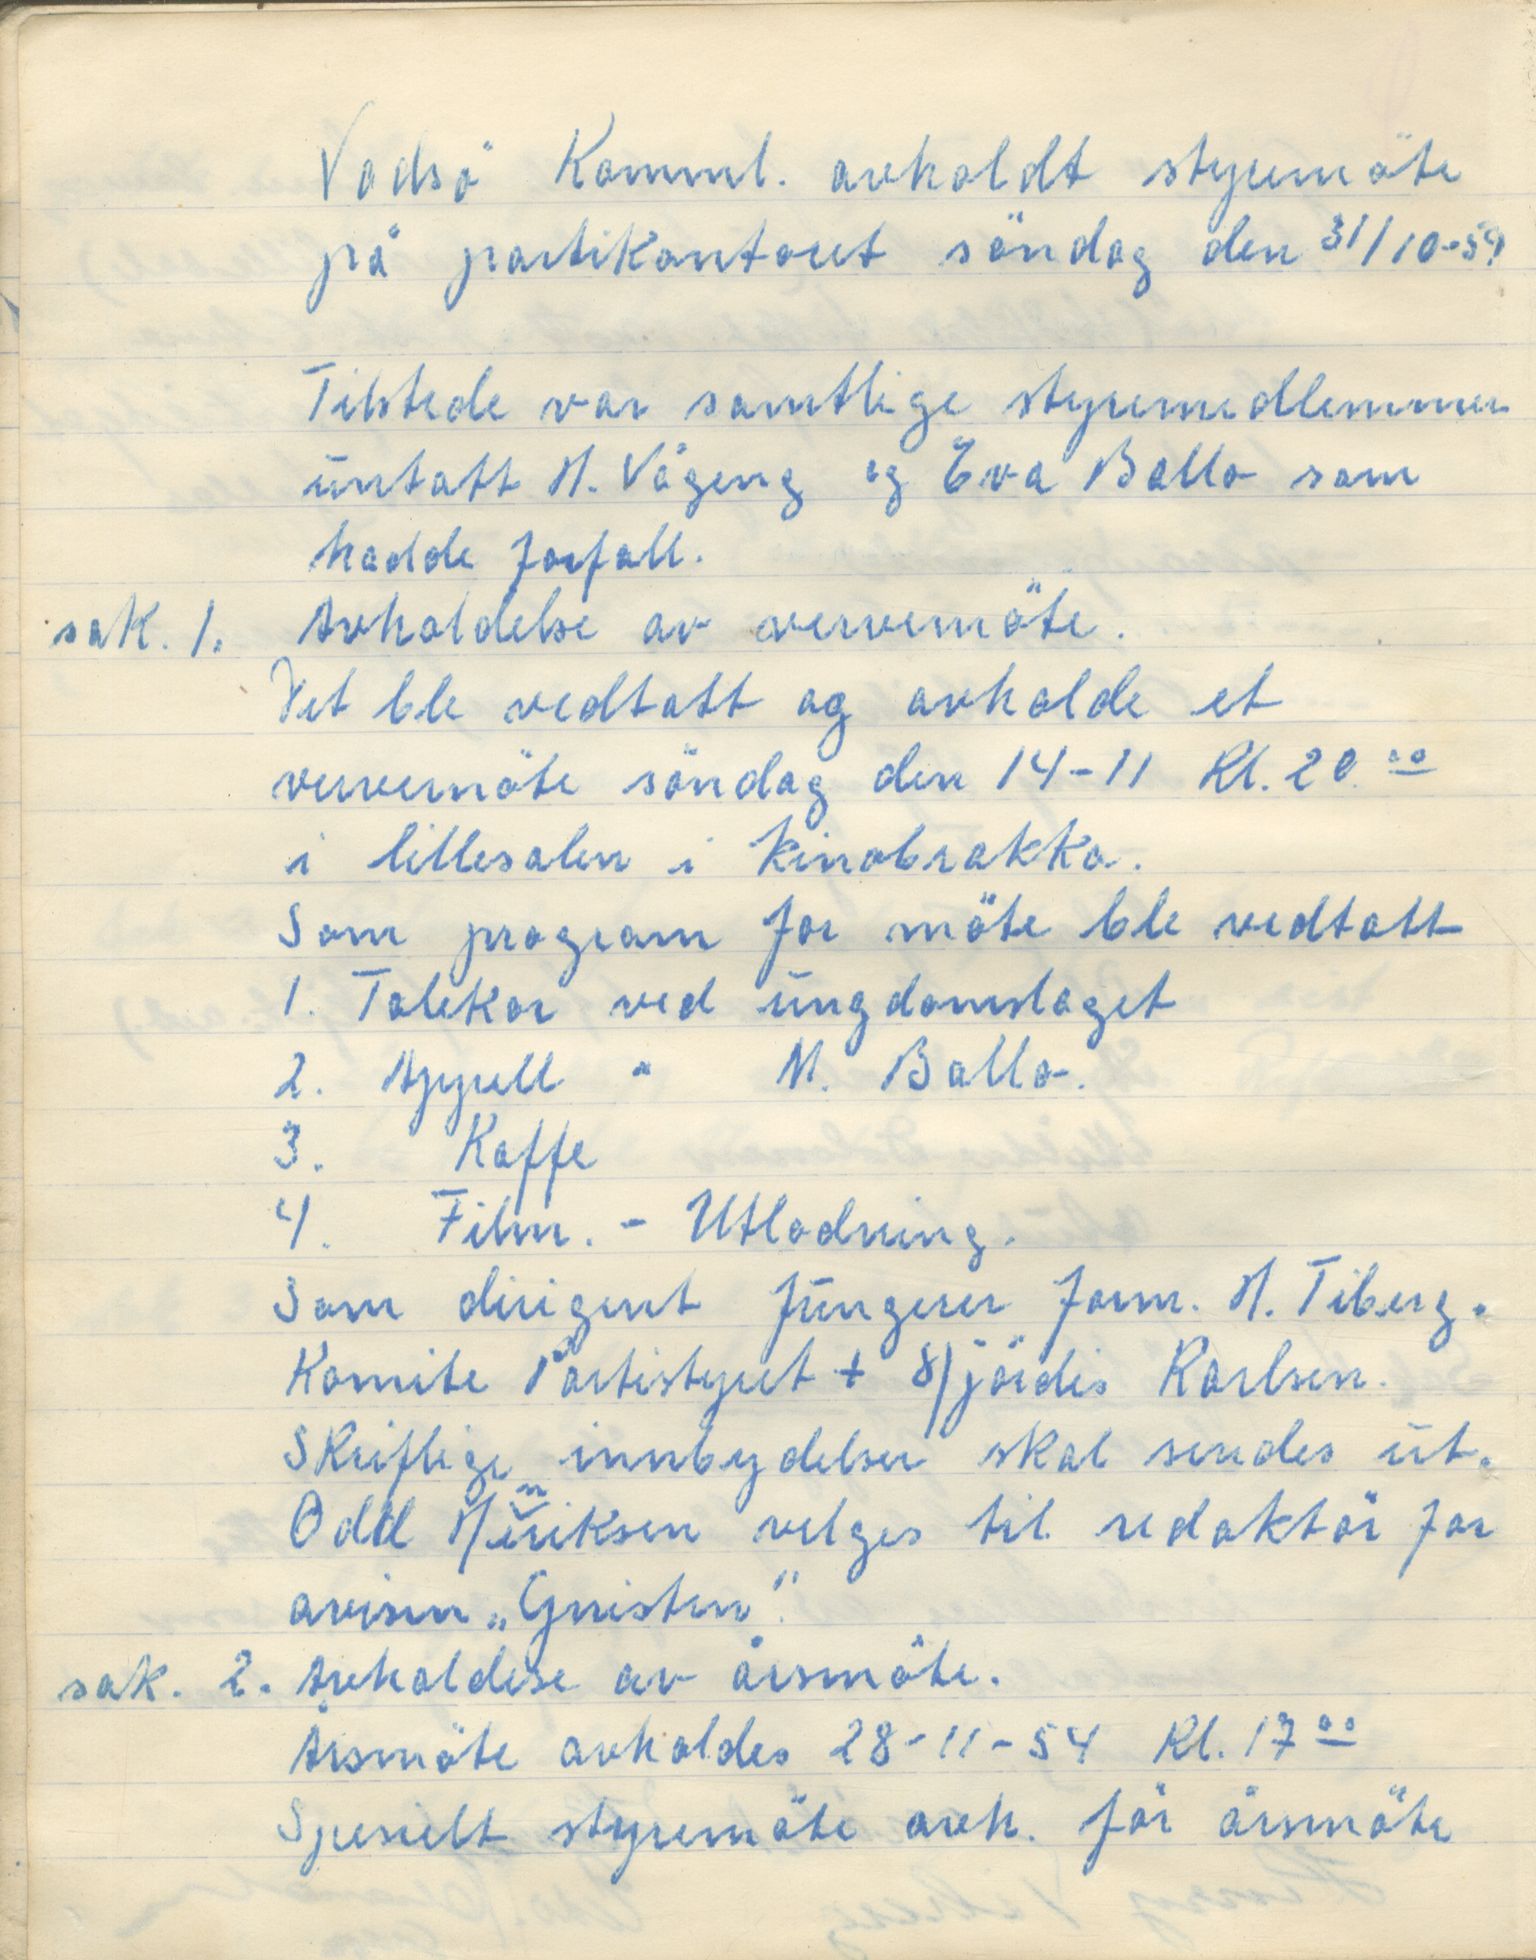 Vadsö Komml. avholdt styremöte
på partikontoret söndag den 31/10-54
Tilstede var samtlige styremedlemmer
untatt H. Vågeng og Eva Ballo som
hadde forfall.
sak. 1. Avholdelse av vervemöte.
Det ble vedtatt og avholde et
vervemöte söndag den 14-11 Kl. 20.00
i lillesalen i Kinobrakka.
Som program for möte ble vedtatt
1. Talekor ved ungdomslaget
2. Appell " N. Ballo.
3. Kaffe
4. Film. - Utlodning.
Som dirigent fungerer form. H. Tiberg.
Komite Partistyret + Hjördis Karlsen.
Skriftlige innbydelser skal sendes ut.
Odd Henriksen velges til redaktör for
avisen „Gnisten".
sak. 2. Avholdese av årsmöte.
Årsmöte avholdes 28-11-54 Kl. 17 00
Spesielt styremöte avh. för årsmöte